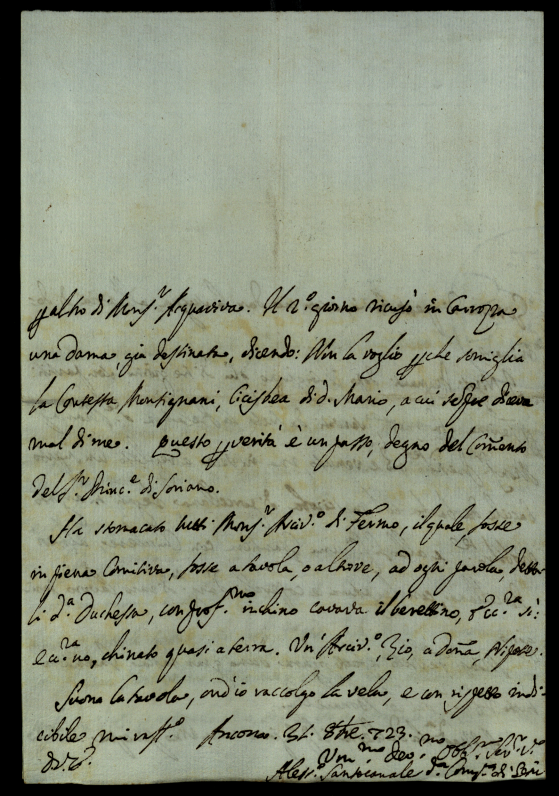 p altro di Mons.r Acquaviva. Il 2.o giorno ricusò in Carrozza
una dama già destinata, dicendo: Non la voglio pche somiglia
la Contessa Montignani, Cicisbea di d. Mario, a cui sempre diceva
mal di me. Questo p verità è un passo, degno del Comento
del S.r Princ.e di Soriano.
Ha stomacato tutti Mons.r Arciv.o di Fermo, il quale, fosse
in piena Comitiva, fosse a tavola, o altrove, ad ogni parola,
d.a Duchessa, con prof.mo inchino cavava il berettino, Ecc.za sì:
Ecc.za no, chinato quasi a terra. Un' Arciv.o, Zio, a donna, Nipote.
Suona la tavola, ond'io raccolgo la vela, e con rispetto indi-
cibile mi raff.o Ancona. 31. 8bre. 723.
Di V. E.
Um.mo Dev.mo Obb.mo Ser.re V.o
Aless.o